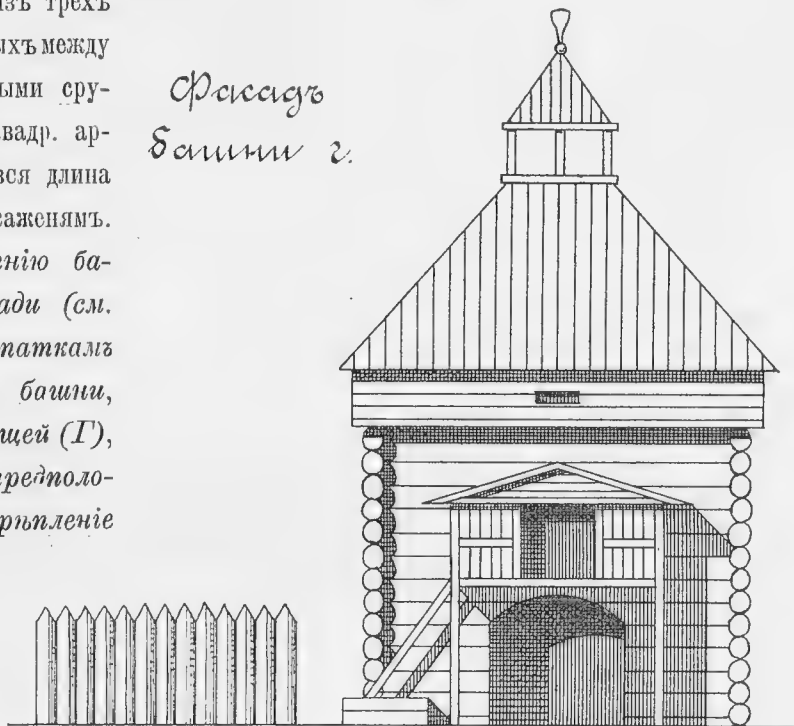 изъ трехъ
ыхъ между
ыми сру-
вадр. ар-
вся длина
саженямъ.
енію ба-
ади (см.
паткамъ
башни,
щей (Г),
предполо-
рѣпленіе
Фасадъ
башни г.